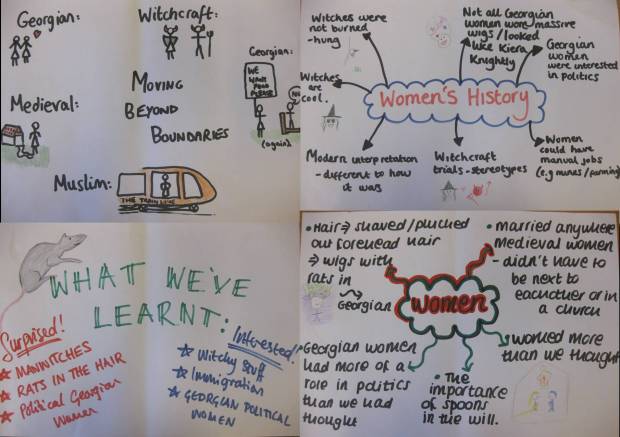 Georgian:
Witchcraft:
Georgian:
WE
WANT
FOOD
PLEASE
NO
(again)
Medieval:
MOVING
BEYOND
BOUNDARIES
Muslim:
THE TRAIN LINE
Witches were
not burned
-hung
Not all Georgian
women wore massive
wigs/looked
like Kiera
Knightly
Georgian
women
were interested
in politics
Witches
are
cool.
Women's History
Modern interpretation
- different to how
it was
Witchcraft
trials - stereotypes
Women
could have
manual jobs
(e.g mines/farming)
WHAT WE'VE
LEARNT:
Surprised!
MANWITCHES
RATS IN THE HAIR
Political Georgian
Women
Interested!
Witchy stuff
Immigration
GEORGIAN POLITICAL
WOMEN
• Hair → shaved/plucked
out forehead hair
→ wigs with
rats in
Georgian
• married anywhere
Medieval women
- didn't have to
be next to
eachother or in
a church
women
Georgian women
had more of a
role in politics
than we had
thought
• The
importance
of spoons
in the will.
worked more
than we thought